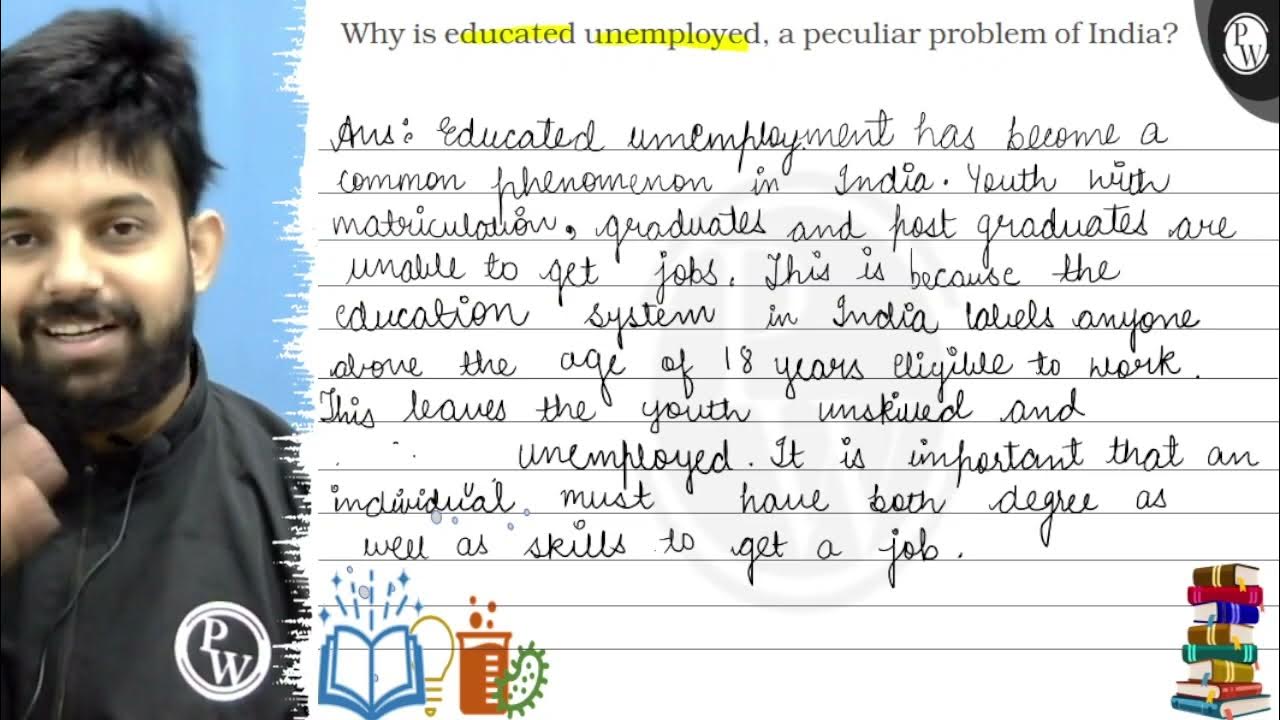 Why is educated unemployed, a peculiar problem of India?
PW
Ans: Educated unemployment has become a
common phenomenon in India. Youth with
matriculation, graduates and post graduates are
unable to get jobs. This is because the
education system in India labels anyone
above the age of 18 years eligible to work.
This leaves the youth unskilled and
unemployed. It is important that an
individual must have both degree as
well as skills to get a job.
PW